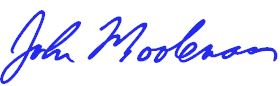 John Moolenaar